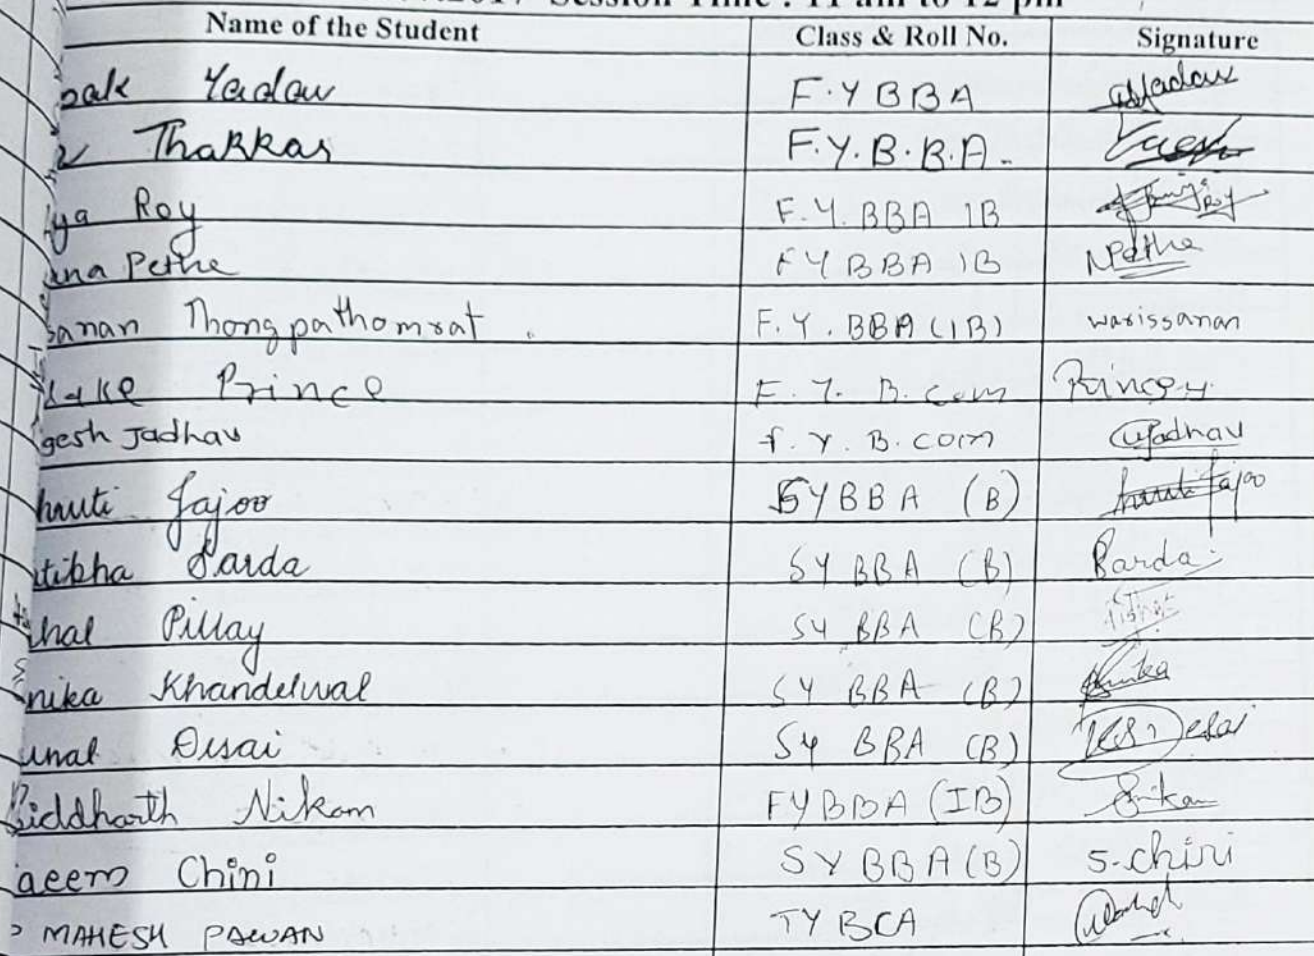 2017 Session Time : 11 am to 12 pm
Name of the Student Class & Roll No. Signature
pak Yadav F.Y BBA Yadav
Thakkar F.Y.B.B.A.
ya Roy F.Y.BBA IB Roy
ana Pethe FYBBA IB NPethe
sanan Thongpathomrat. F.Y.BBA (IB) warissanan
Prince F.Y. B.com Prince
gesh Jadhav f.Y.B.com Jadhav
hruti Jajoo SYBBA (B) Jajoo
atibha Sarda SYBBA (B) Sarda
hal Pillay SY BBA (B)
nika Khandelwal SY BBA (B)
unal Desai SY BBA (B) Desai
Siddharth Nikam FYBBA (IB)
aeem Chini SYBBA (B) S.chini
MAHESH PAWAN TYBCA